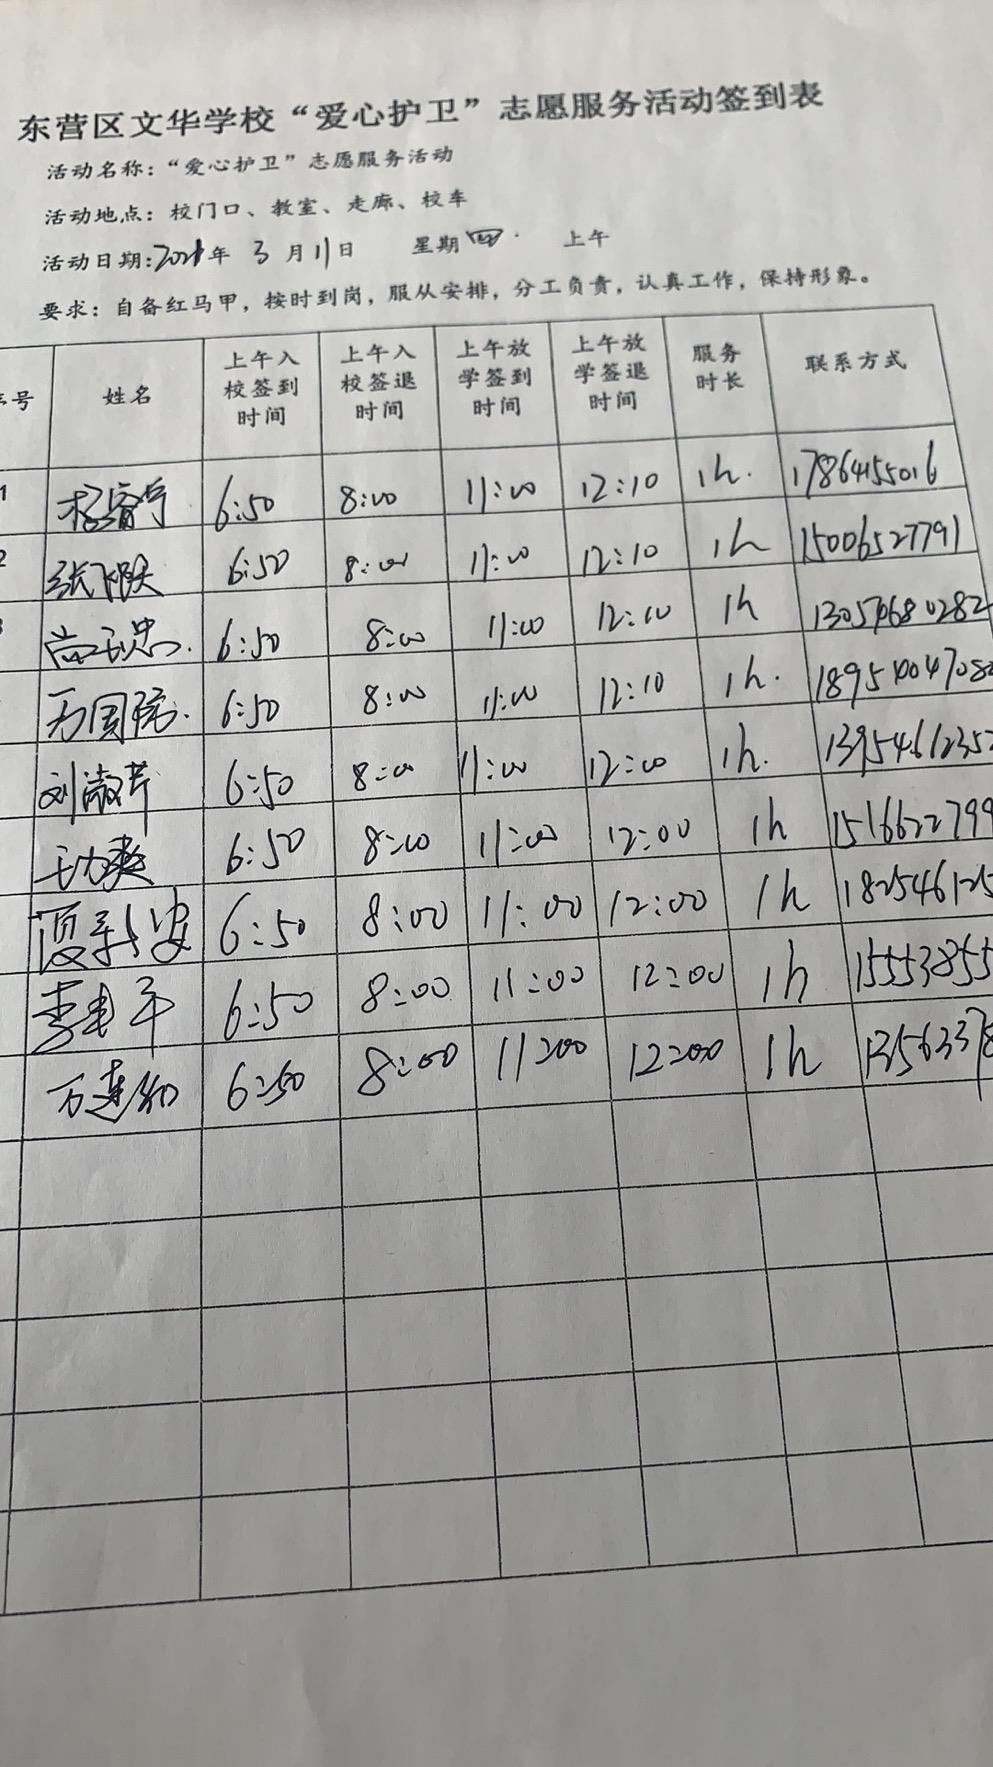 东营区文华学校“爱心护卫”志愿服务活动签到表
活动名称：“爱心护卫”志愿服务活动
活动地点：校门口、教室、走廊、校车
活动日期：2021年 3月11日 星期四 上午
要求：自备红马甲，按时到岗，服从安排，分工负责，认真工作，保持形象。
号 姓名 上午入校签到时间 上午入校签退时间 上午放学签到时间 上午放学签退时间 服务时长 联系方式
1 6:50 8:00 11:00 12:10 1h. 17864155016
2 6:50 8:00 11:00 12:10 1h 15006527791
6:50 8:00 11:00 12:10 1h
6:50 8:00 11:00 12:10 1h.
刘淑芹 6:50 8:00 11:00 12:00 1h.
6:50 8:00 11:00 12:00 1h 1516622799
6:50 8:00 11:00 12:00 1h 182546125
6:50 8:00 11:00 12:00 1h 15553855
6:50 8:00 11:00 12:00 1h 13563378